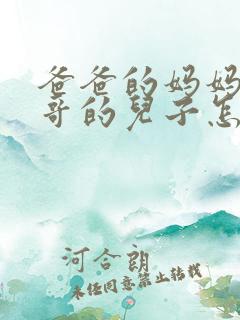 爸爸的妈妈
哥的兒子怎
河合朗
未经同意禁止转载